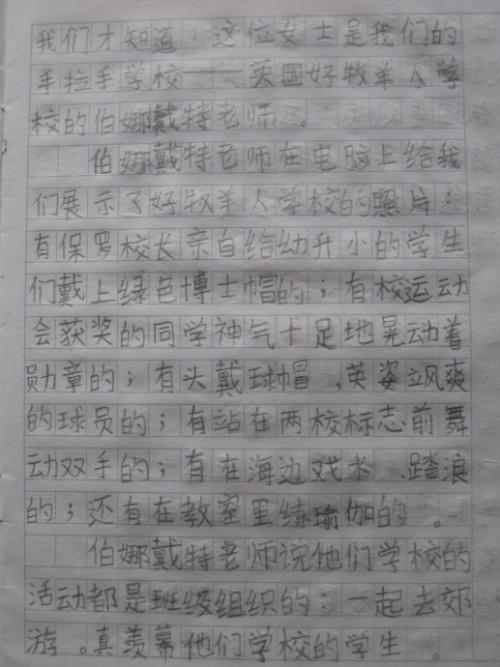 我们才知道：这位女士是我们的
手拉手学校——英国好牧羊人学
校的伯娜戴特老师。
伯娜戴特老师在电脑上给我
们展示了好牧羊人学校的照片：
有保罗校长亲自给幼升小的学生
们戴上绿色博士帽的；有校运动
会获奖的同学神气十足地晃动着
勋章的；有头戴球帽、英姿飒爽
的球员的；有站在两校标志前舞
动双手的；有在海边戏水、踏浪
的；还有在教室里练瑜伽的。
伯娜戴特老师说他们学校的
活动都是班级组织的：一起去郊
游。真羡慕他们学校的学生。